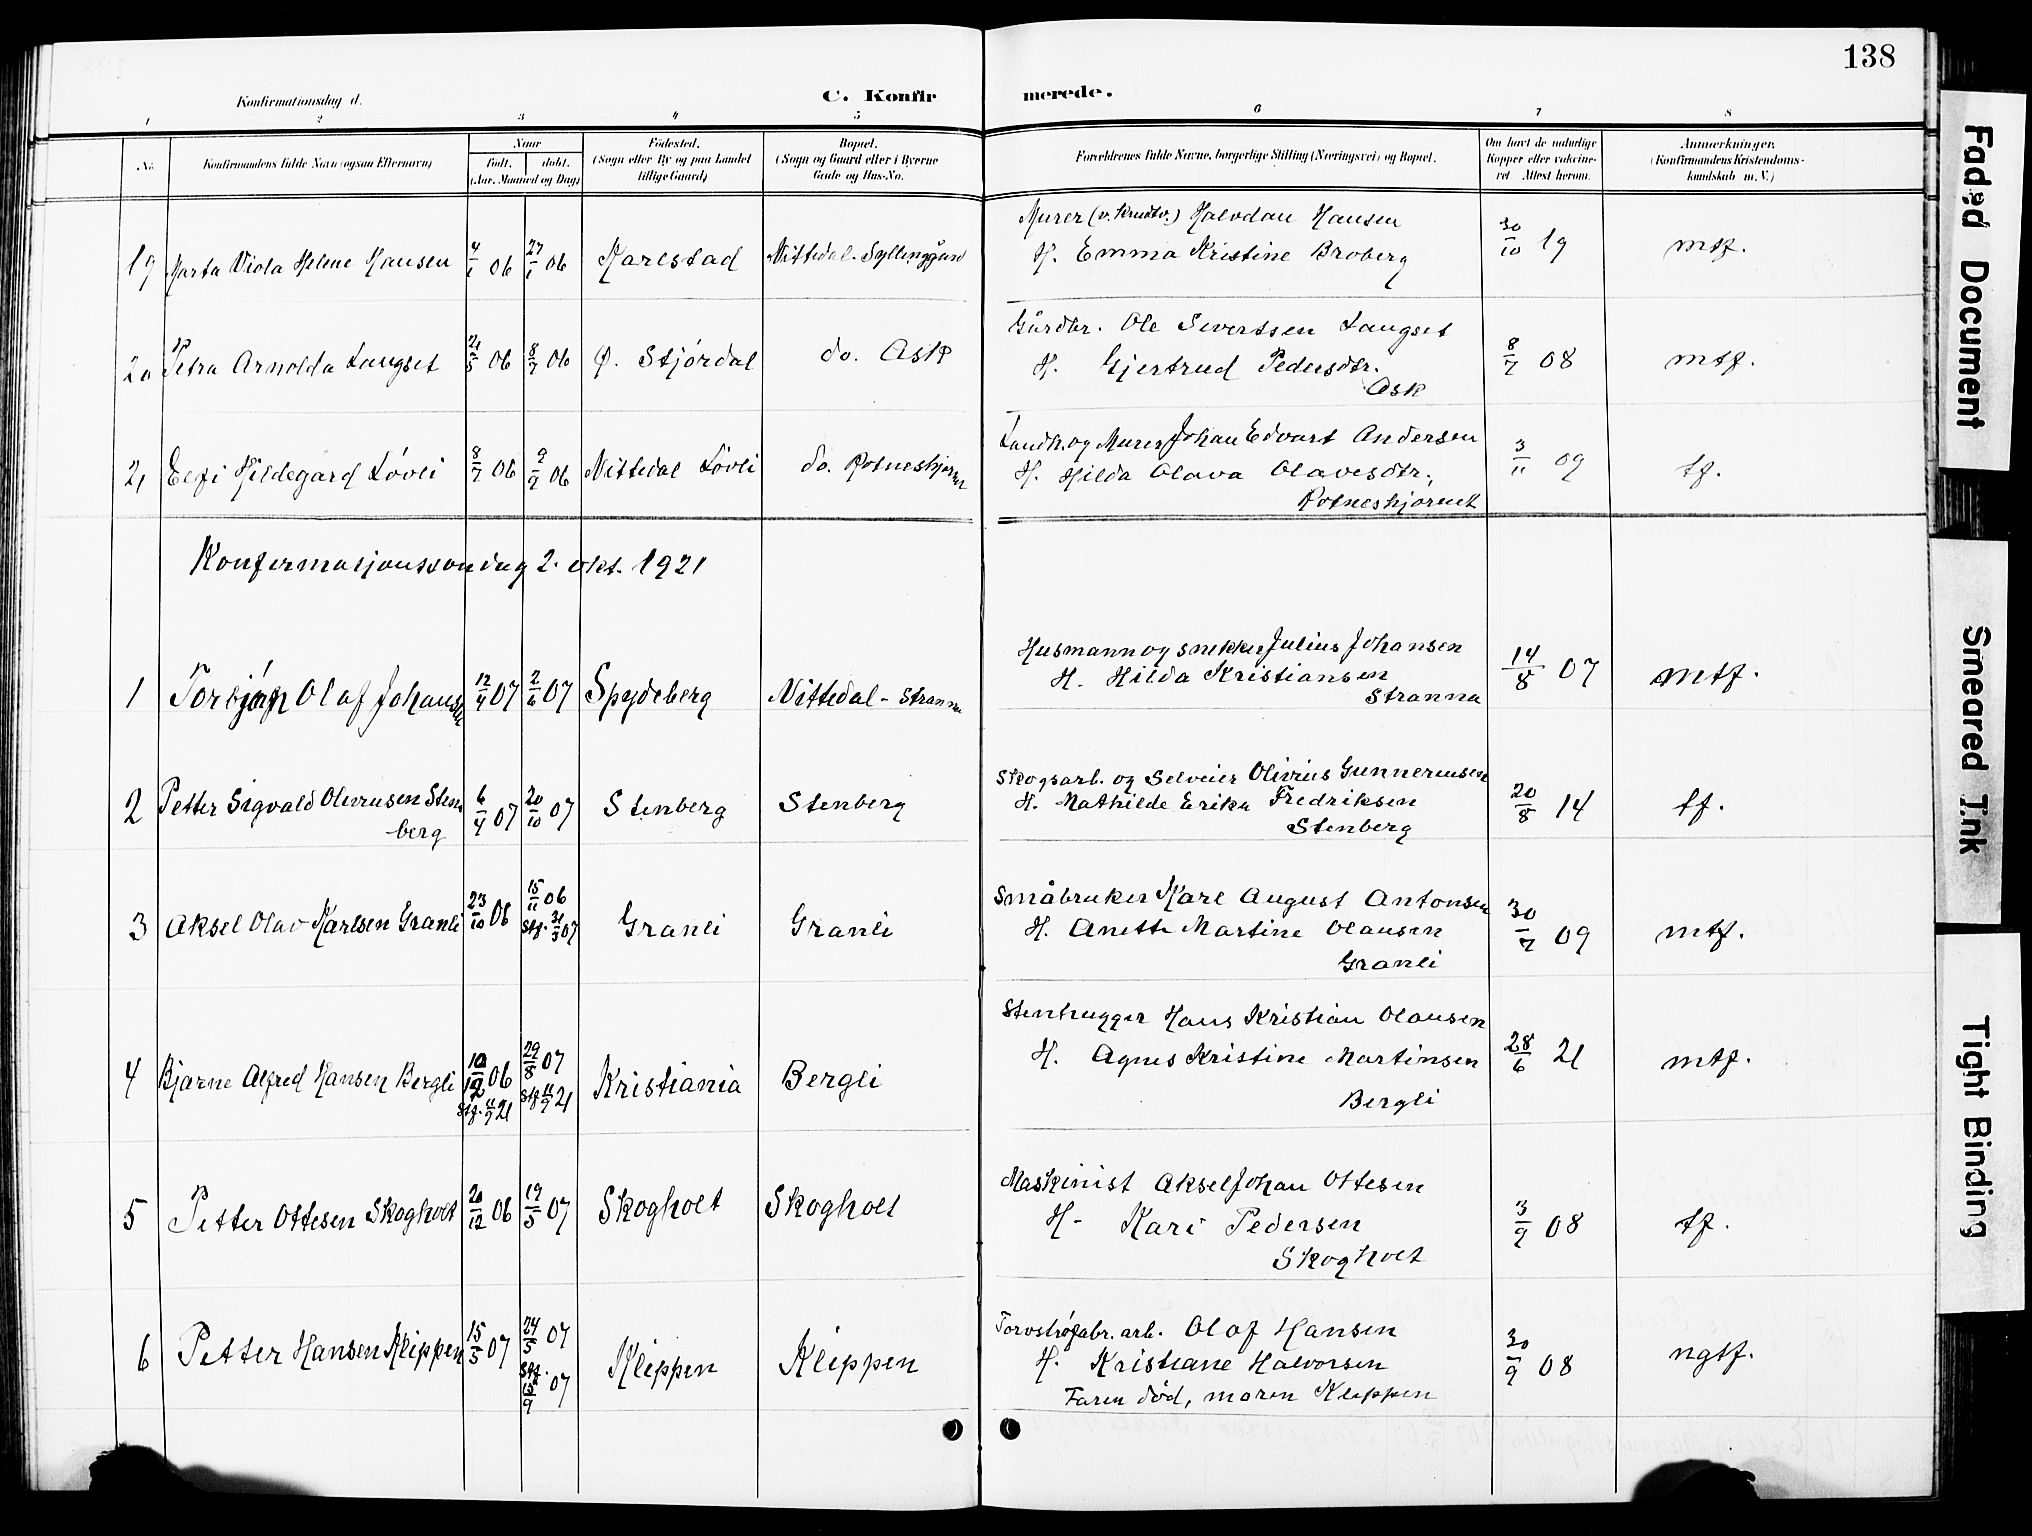 138
Konfirmationsdag d.
C. Konfir
merede.
1 2 3 4 5 6 7 8
No. Konfirmandens fulde Navn (ogsaa Efternavn) Naar født. døbt. (Aar, Maaned og Dag) Fødested. (Sogn eller By og paa Landet tillige Gaard) Bopæl. (Sogn og Gaard eller i Byerne Gade og Hus-No. Forældrenes fulde Navne, borgerlige Stilling (Næringsvei) og Bopæl. Om havt de naturlige Kopper eller vakcineret Attest herom. Anmerkninger. (Konfirmandens Kristendomskundskab m. V.)
19 Marta Viola Helene Hansen 4/1 06 27/1 06 Karlstad Nittedal
Murer (v. Krudtv.) Halvdan Hansen
H. Emma Kristine Broberg
30/10 19 mtf.
20 Petra Arnolda Langset 21/5 06 8/7 06 Ø. Stjørdal do. Ask
Gårdbr. Ole Sivertsen Langset
H. Gjertrud Pedersdtr.
Ask
8/7 08 mtf.
21 Elfi Hildegard Løvli 8/7 06 9/9 06 Nittedal Løvli do. Rotneshjørnet
Landh. og Murer Johan Edvart Andersen
H. Hilda Olava Olavesdtr.,
Rotneshjørnet
3/11 09 tf.
Konfermasjonssøndag 2. okt. 1921
1 Olaf Johansen 12/4 07 2/6 07 Spydeberg Nittedal - Stranna
Husmann og snekker Julius Johansen
H. Hilda Kristiansen
Stranna
14/8 07 mtf.
2 Petter Sigvald Oliviusen Sten
berg 6/4 07 20/10 07 Stenberg Stenberg
Skogsarb. og Selveier Olivius Gunneriusen
H. Mathilde Erika Fredriksen
Stenberg
20/8 14 tf.
3 Aksel Olav Karlsen Granli 23/10 06 15/11 06
Stf. 31/3 07 Granli Granli
Småbruker Karl August Antonsen
H. Anette Martine Olausen
Granli
30/7 09 mtf.
4 Bjarne Alfred Hansen Bergli 10/12 06 29/8 07
Stf. 11/9 21 Stf. 11/9 21 Kristiania Bergli
Stenhugger Hans Kristian Olausen
H. Agnes Kristine Martinsen
Bergli
28/6 21 mtf.
5 Petter Ottesen Skogholt 20/12 06 19/5 07 Skogholt Skogholt
Maskinist Aksel Johan Ottesen
H. Kari Pedersen
Skogholt
3/9 08 tf.
6 Petter Hansen Klippen 15/5 07 24/5 07
Stf. 15/9 07 Klippen Klippen
Torvstrøfabr. arb. Olaf Hansen
H. Kristiane Halvorsen
Faren død, moren Klippen
30/9 08 ngtf.
Faded Document
Smeared Ink
Tight Binding